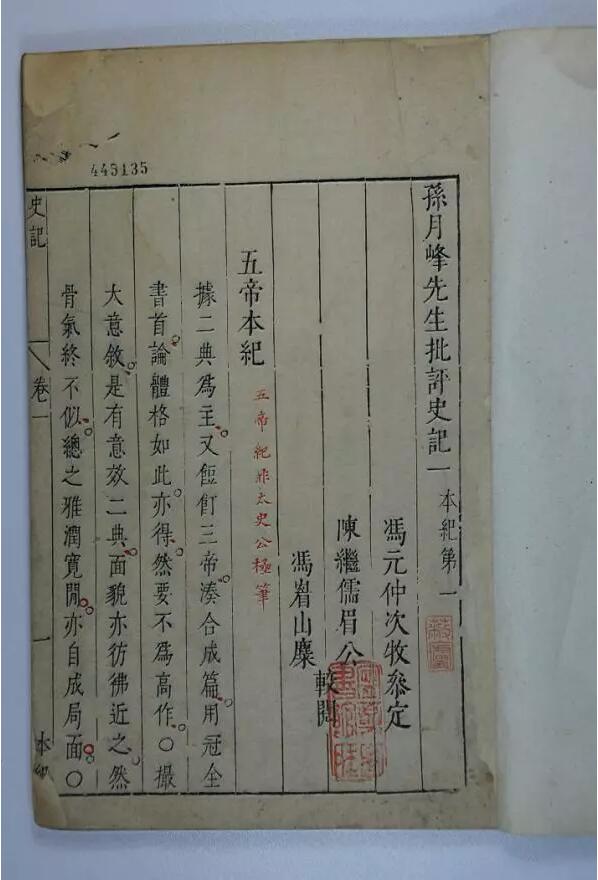 445135
孫月峰先生批評史記一 本紀第一
馮元仲次牧參定
陳繼儒眉公
馮㟭山麋
較閱
五帝本紀
五帝紀非太史公極筆
據二典爲主又飣餖三帝湊合成篇用冠全
書首論體格如此亦得然要不爲高作〇撮
大意敘是有意效二典面貌亦彷彿近之然
骨氣終不似總之雅潤寬閒亦自成局面〇
史記
卷一
一
本紀